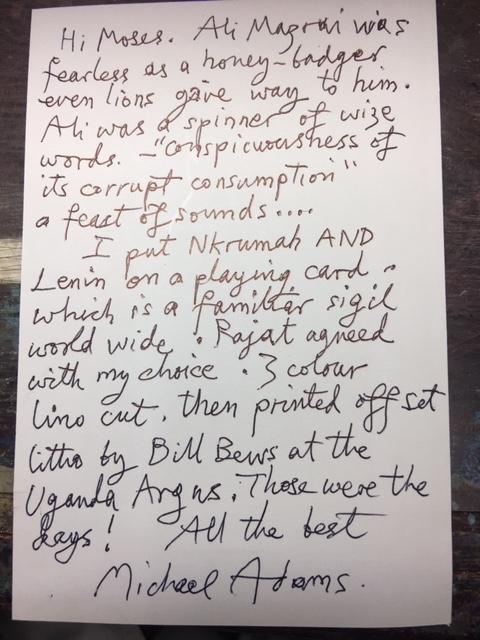 Hi Moses. Ali Mazrui was
fearless as a honey-badger
even lions gave way to him.
Ali was a spinner of wize
words. - "conspicuousness of
its corrupt consumption"
a feast of sounds....
I put Nkrumah AND
Lenin on a playing card.
which is a familiar sigil
world wide. Rajat agreed
with my choice. 3 colour
lino cut. then printed off set
litho by Bill Bews at the
Uganda Argus. Those were the
days! All the best
Michael Adams.